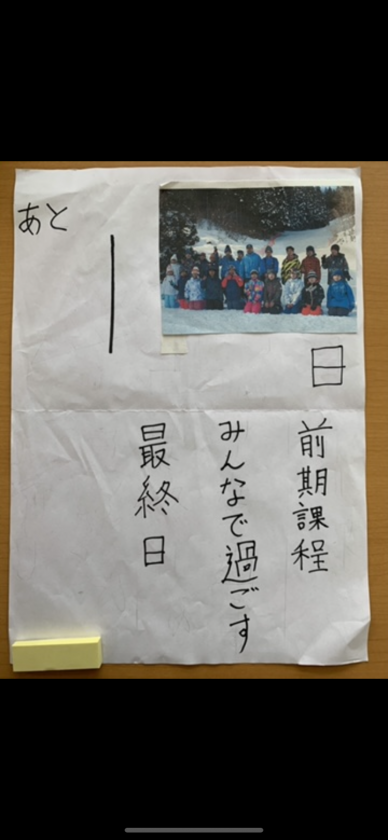 あと
1
日
前期課程
みんなで過ごす
最終日